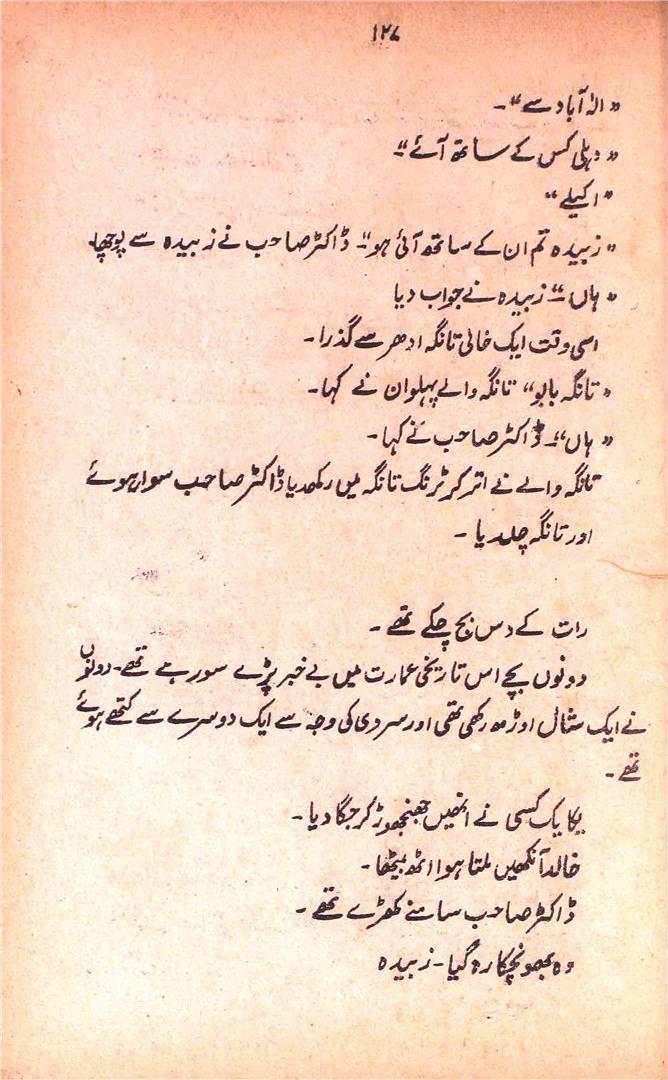 ۱۲۷
" الٰہ آباد سے "۔
" دہلی کس کے ساتھ آئے "۔
" اکیلے "
" زبیدہ تم ان کے ساتھ آئی ہو "۔ ڈاکٹر صاحب نے زبیدہ سے پوچھا۔
" ہاں "۔ زبیدہ نے جواب دیا
اسی وقت ایک خالی تانگہ ادھر سے گذرا۔
" تانگہ بابو " تانگہ والے پہلوان نے کہا۔
" ہاں "۔ ڈاکٹر صاحب نے کہا۔
تانگہ والے نے اتر کر ٹرنک تانگہ میں رکھدیا ڈاکٹر صاحب سوار ہوئے
اور تانگہ چلدیا ۔
رات کے دس بج چکے تھے ۔
دونوں بچے اس تاریخی عمارت میں بے خبر پڑے سو رہے تھے۔ دونوں
نے ایک شال اوڑھ رکھی تھی اور سردی کی وجہ سے ایک دوسرے سے گتھے ہوئے
تھے ۔
یکایک کسی نے انھیں جھنجھوڑ کر جگا دیا ۔
خالد آنکھیں ملتا ہوا اٹھ بیٹھا ۔
ڈاکٹر صاحب سامنے کھڑے تھے ۔
وہ بھونچکا رہ گیا ۔ زبیدہ